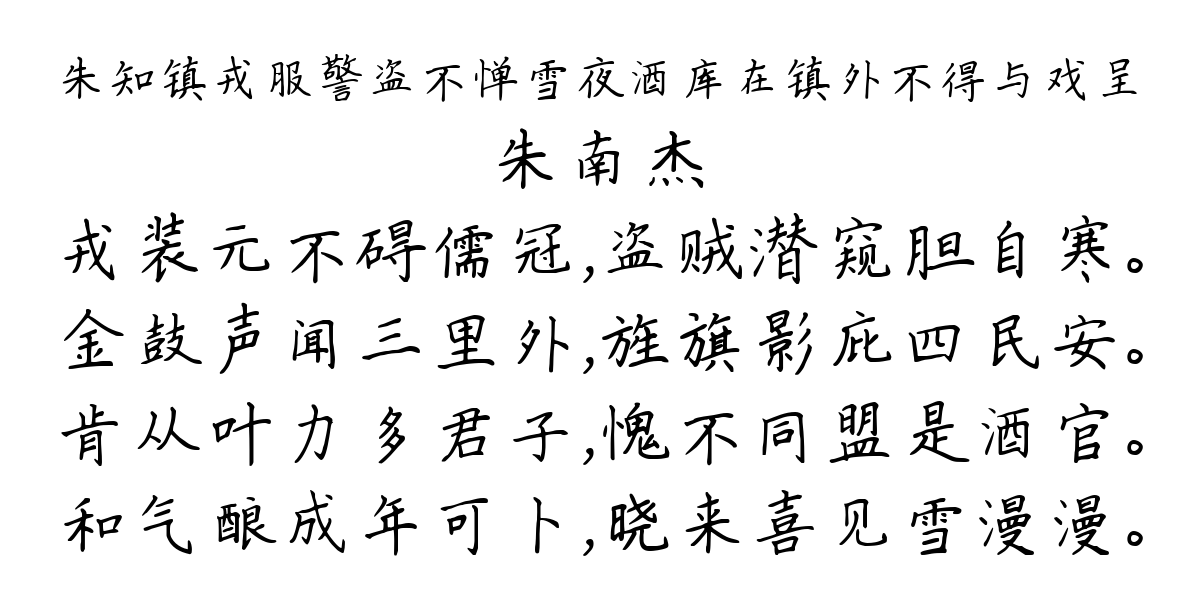 朱知镇戎服警盗不惮雪夜酒库在镇外不得与戏呈
朱南杰
戎装元不碍儒冠,盗贼潜窥胆自寒。
金鼓声闻三里外,旌旗影庇四民安。
肯从叶力多君子,愧不同盟是酒官。
和气酿成年可卜,晓来喜见雪漫漫。